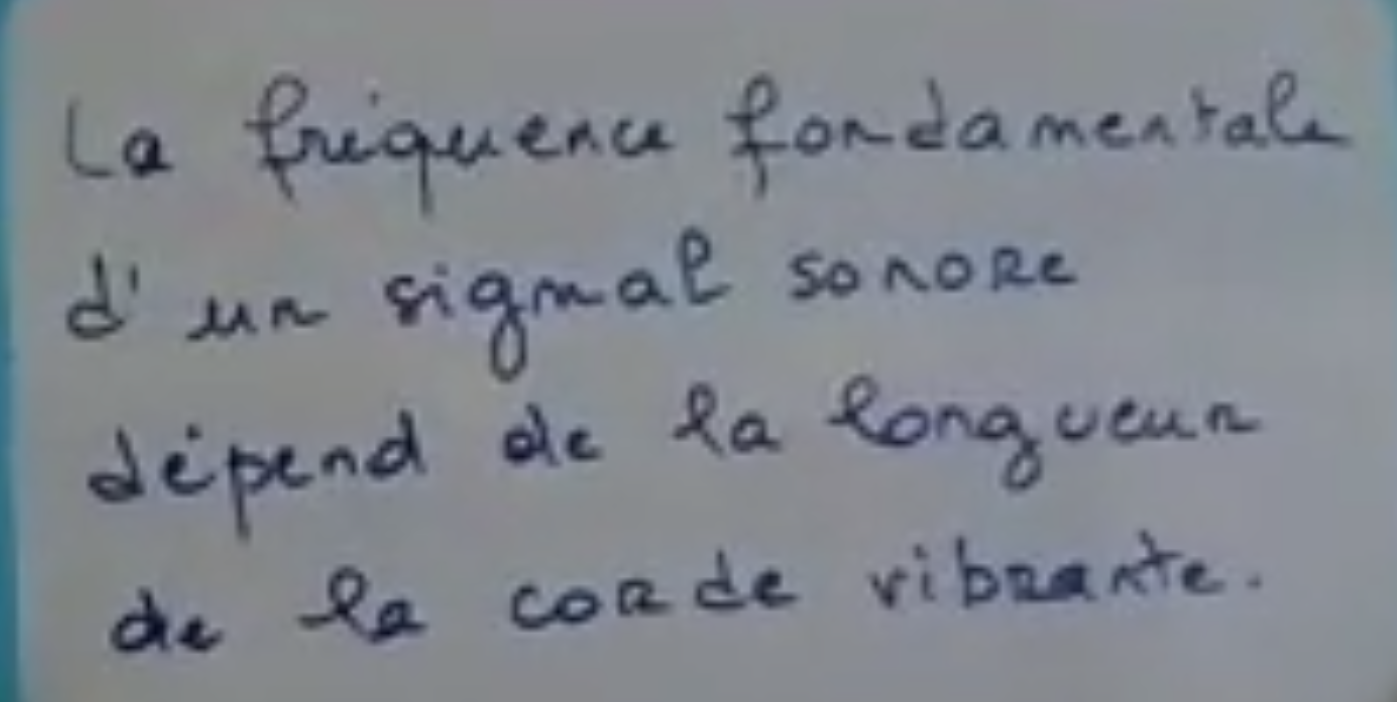 La fréquence fondamentale
d'un signal sonore
dépend de la longueur
de la corde vibrante.